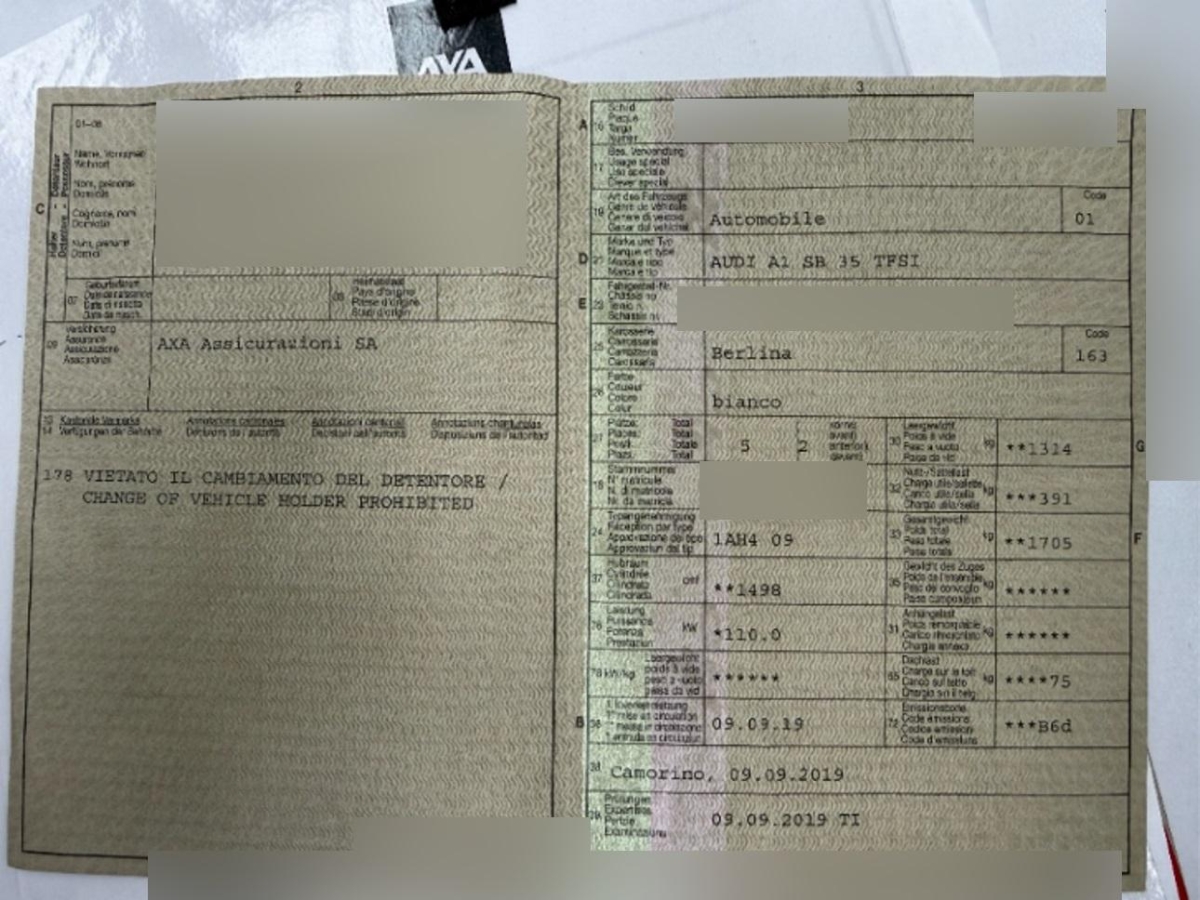 AXA
2
C
01-06
Halter - Détenteur
Detentore - Possessur
Name, Vornamen
Wohnort
Nom, prénoms
Domicile
Cognome, nomi
Domicilio
Num, prenums
Domicil
07
Geburtsdatum
Date de naissance
Data di nascita
Data da nasch.
08
Heimatstaat
Pays d'origine
Paese d'origine
Stadi d'origin
09
Versicherung
Assurance
Assicurazione
Assicuranza
AXA Assicurazioni SA
13 Kantonale Vermerke Annotations cantonales Annotazioni cantonali Annotaziuns chantunalas
14 Verfügungen der Behörde Décisions de l'autorité Decisioni dell'autorità Disposiziuns da l'autoritad
178 VIETATO IL CAMBIAMENTO DEL DETENTORE /
CHANGE OF VEHICLE HOLDER PROHIBITED
3
A 15
Schild
Plaque
Targa
Numer
17
Bes. Verwendung
Usage spécial
Uso speciale
Diever spezial
19
Art des Fahrzeugs
Genre de véhicule
Genere di veicolo
Gener dal vehichel
Automobile
Code
01
D 21
Marke und Typ
Marque et type
Marca e tipo
Marca e tip
AUDI A1 SB 35 TFSI
E 23
Fahrgestell-Nr.
Châssis no
Telaio n.
Schassis nr.
25
Karosserie
Carrosserie
Carrozzeria
Carossaria
Berlina
Code
163
26
Farbe
Couleur
Colore
Colur
bianco
27
Plätze: Total
Places: Total
Posti: Totale
Plazs: Total
5 2
vorne
avant
anteriori
davant
30
Leergewicht
Poids à vide
Peso a vuoto
Paisa da vid
kg
**1314
G
18
Stammnummer
N° matricule
N. di matricola
Nr. da matricla
32
Nutz-/Sattellast
Charge utile/sellette
Carico utile/sella
Chargia utile/sella
kg
***391
24
Typengenehmigung
Réception par type
Approvazione del tipo
Approvaziun dal tip
1AH4 09
33
Gesamtgewicht
Poids total
Peso totale
Paisa totala
kg
**1705
F
37
Hubraum
Cylindrée
Cilindrata
Cilindrada
cm³
**1498
35
Gewicht des Zuges
Poids de l'ensemble
Peso del convoglio
Paisa cumposiziun
kg
******
76
Leistung
Puissance
Potenza
Prestaziun
kW
*110.0
31
Anhängelast
Poids remorquable
Carico rimorchiato
Chargia annexa
kg
******
78 kW/kg
Leergewicht
poids à vide
peso a vuoto
paisa da vid
******
55
Dachlast
Charge sur le toit
Carico sul tetto
Chargia sin il tetg
kg
****75
B 36
1. Inverkehrsetzung
1re mise en circulation
1a messa in circolazione
1. entrada en circulaziun
09.09.19
72
Emissionscode
Code émissions
Codice emissioni
Code d'emissiuns
***B6d
38
Camorino, 09.09.2019
39
Prüfungen
Expertises
Perizie
Examinaziuns
09.09.2019 TI